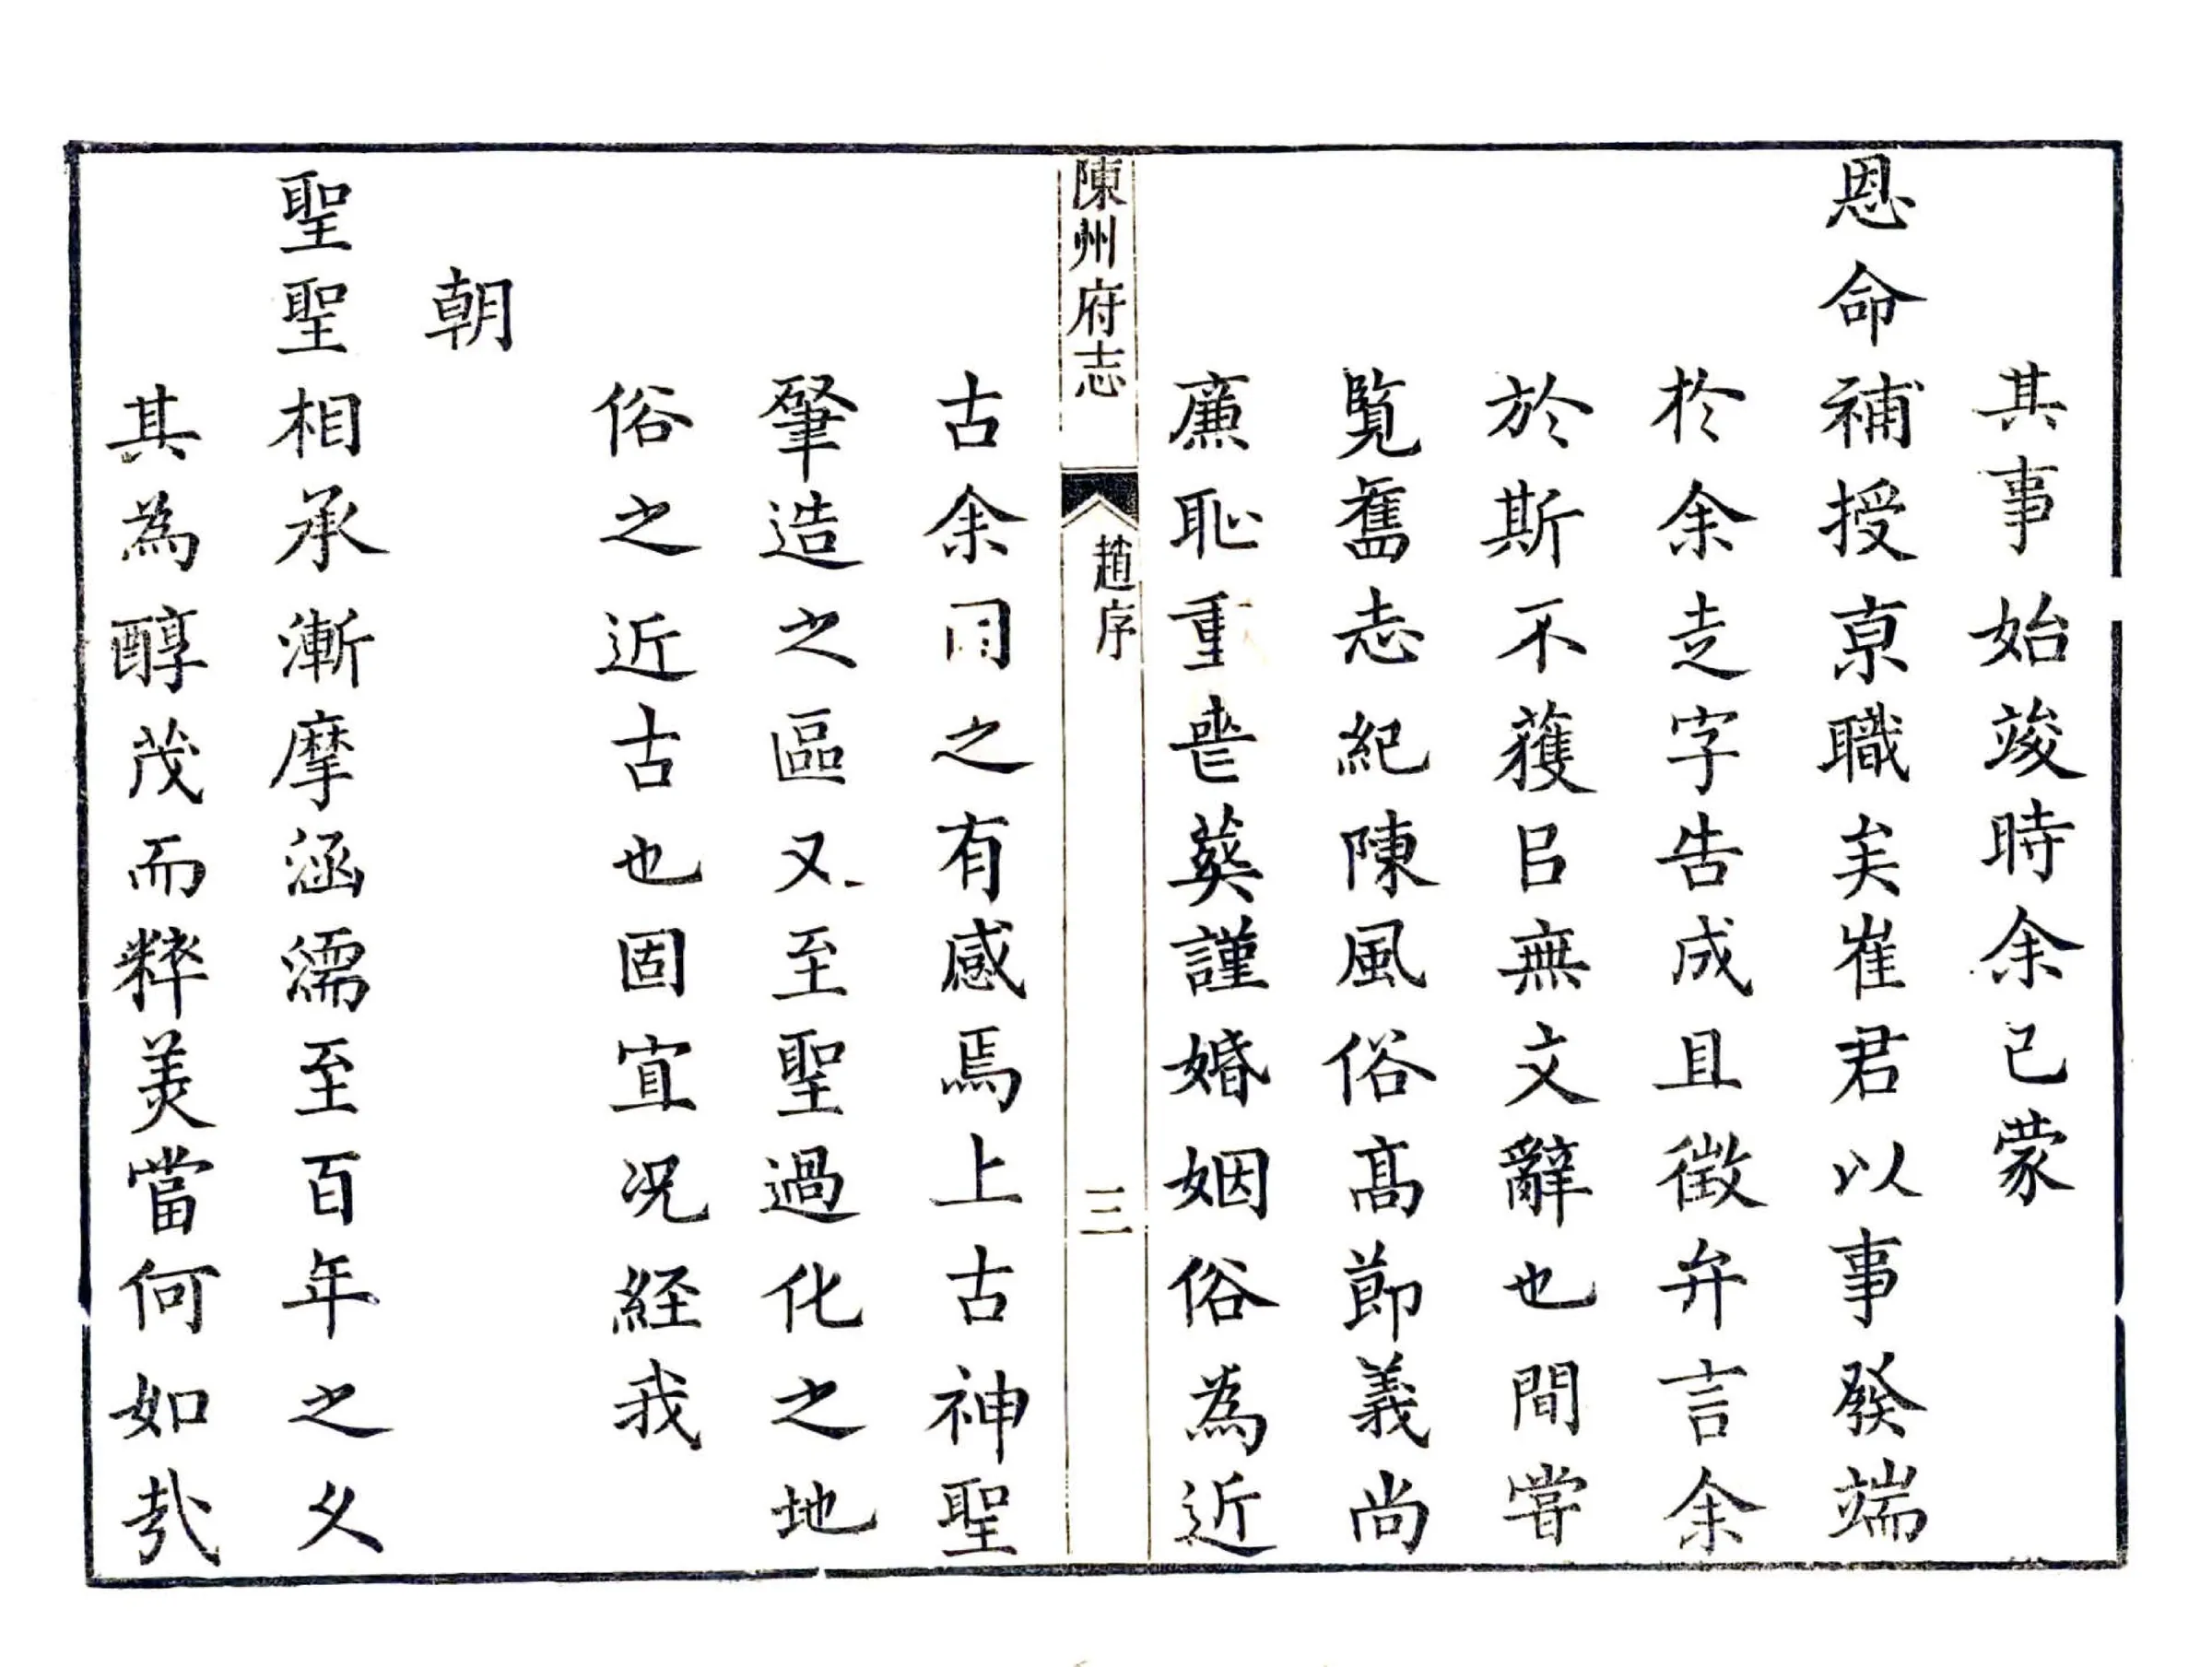 其事始竣時余已蒙
恩命補授京職矣崔君以事發端
於余走字告成且徵弁言余
於斯不獲㠯無文辭也間嘗
覧舊志紀陳風俗髙節義尚
廉恥重喪葬謹婚姻俗為近
陳州府志 趙序 三
古余因之有感焉上古神聖
肇造之區又至聖過化之地
俗之近古也固宜况経我
朝
聖聖相承漸摩涵濡至百年之久
其為醇茂而粹美當何如哉